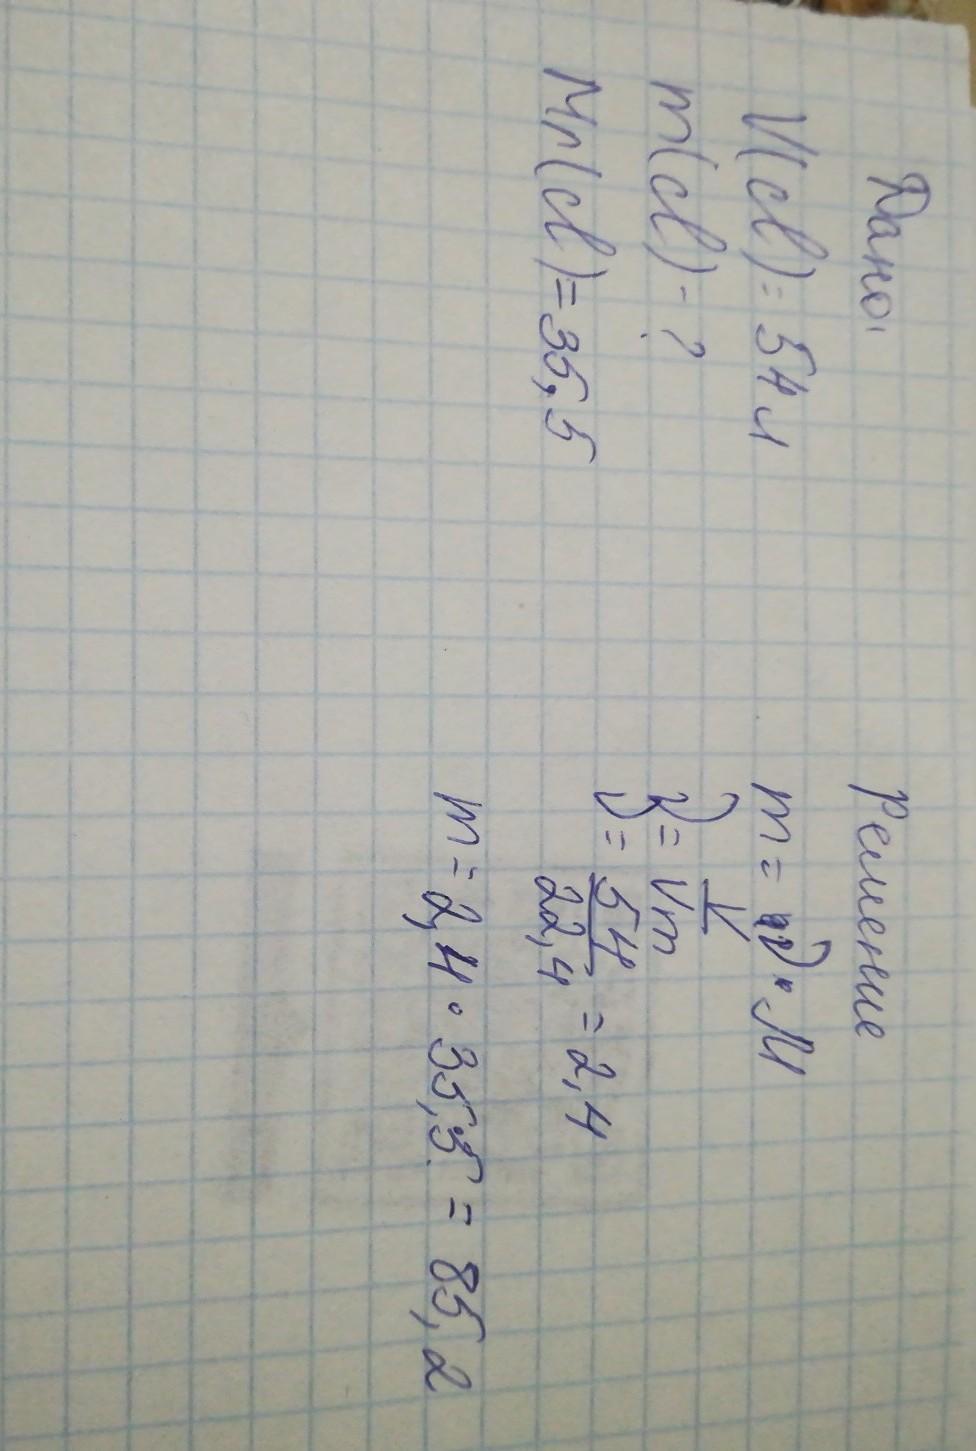 Дано:
V(cl) = 54 л
m(cl) - ?
Mr(cl) = 35,5
Решение
m = ν · M
ν = V / Vm
ν = 54 / 22,4 = 2,4
m = 2,4 · 35,5 = 85,2